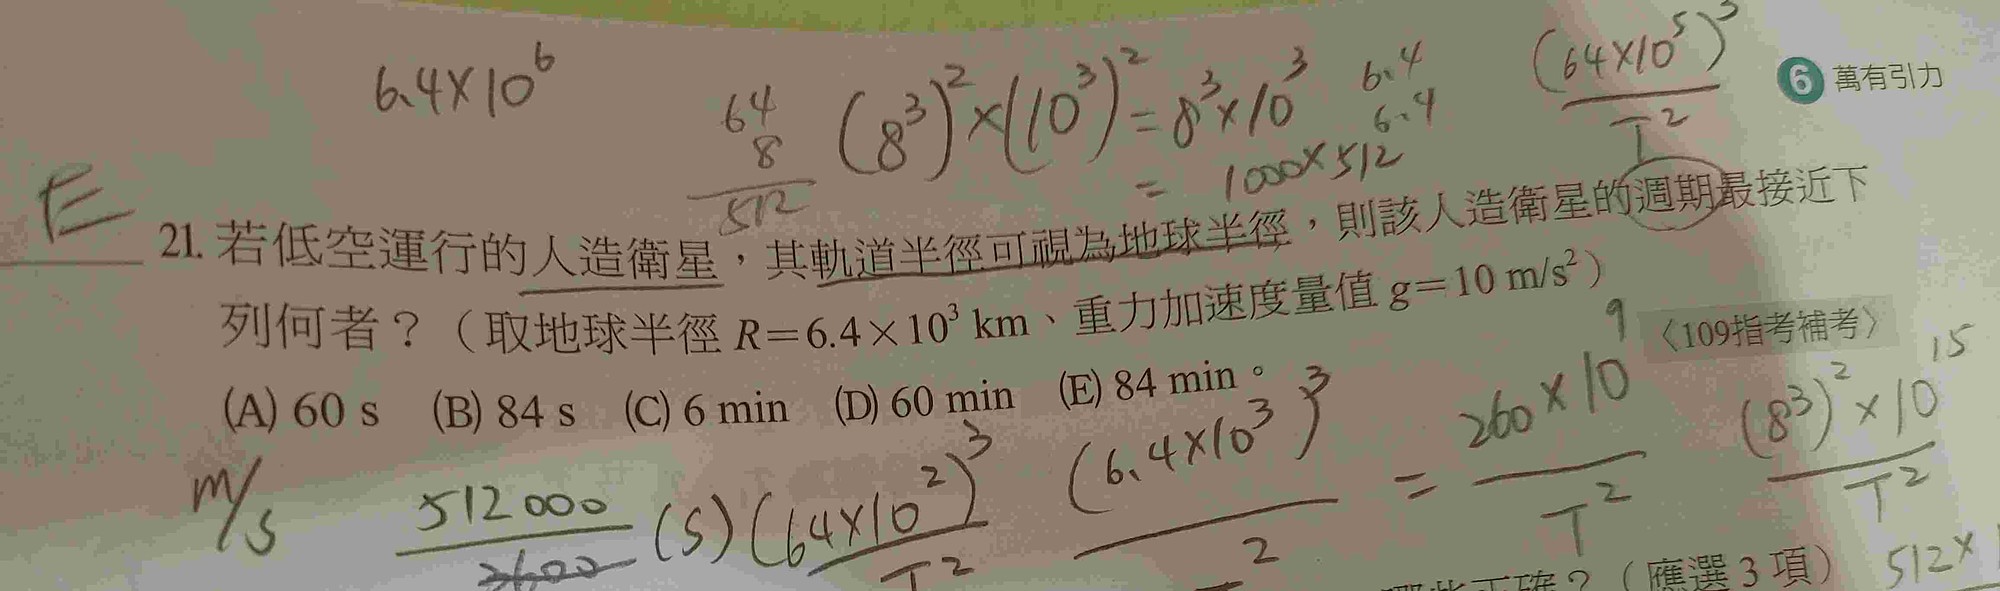 6.4×10⁶
64
8
512
(8³)²×(10³)²=8³×10³
= 1000×512
6.4
6.4
(64×10⁵)³
T²
6 萬有引力
E
21. 若低空運行的人造衛星,其軌道半徑可視為地球半徑,則該人造衛星的週期最接近下
列何者?(取地球半徑 R=6.4×10³ km、重力加速度量值 g=10 m/s²)
〈109指考補考〉
(A) 60 s (B) 84 s (C) 6 min (D) 60 min (E) 84 min。
m/s
512000
3600
(s)
(64×10²)³
T²
(6.4×10³)³
²
= 260×10⁹
T²
(8³)²×10¹⁵
T²
正確?(應選 3 項)
512×